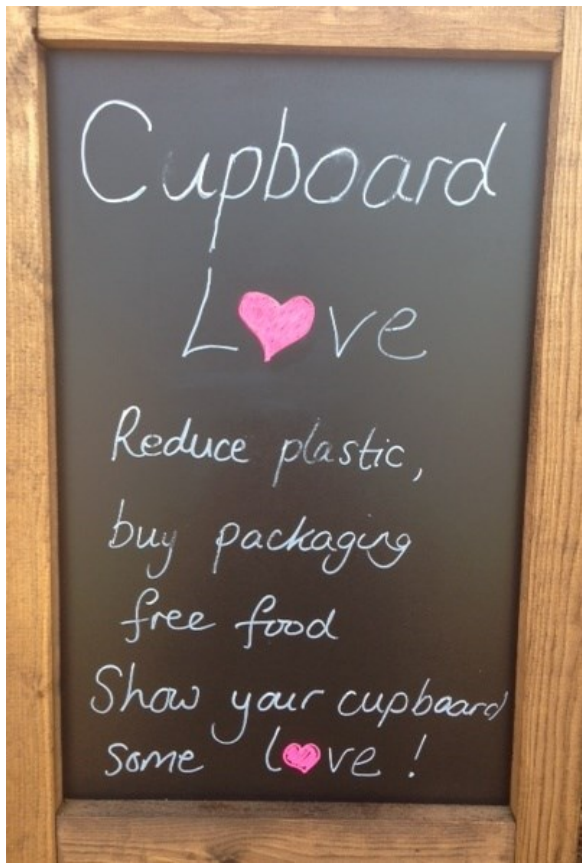 Cupboard
L♥ve
Reduce plastic,
buy packaging
free food
Show your cupboard
some l♥ve!